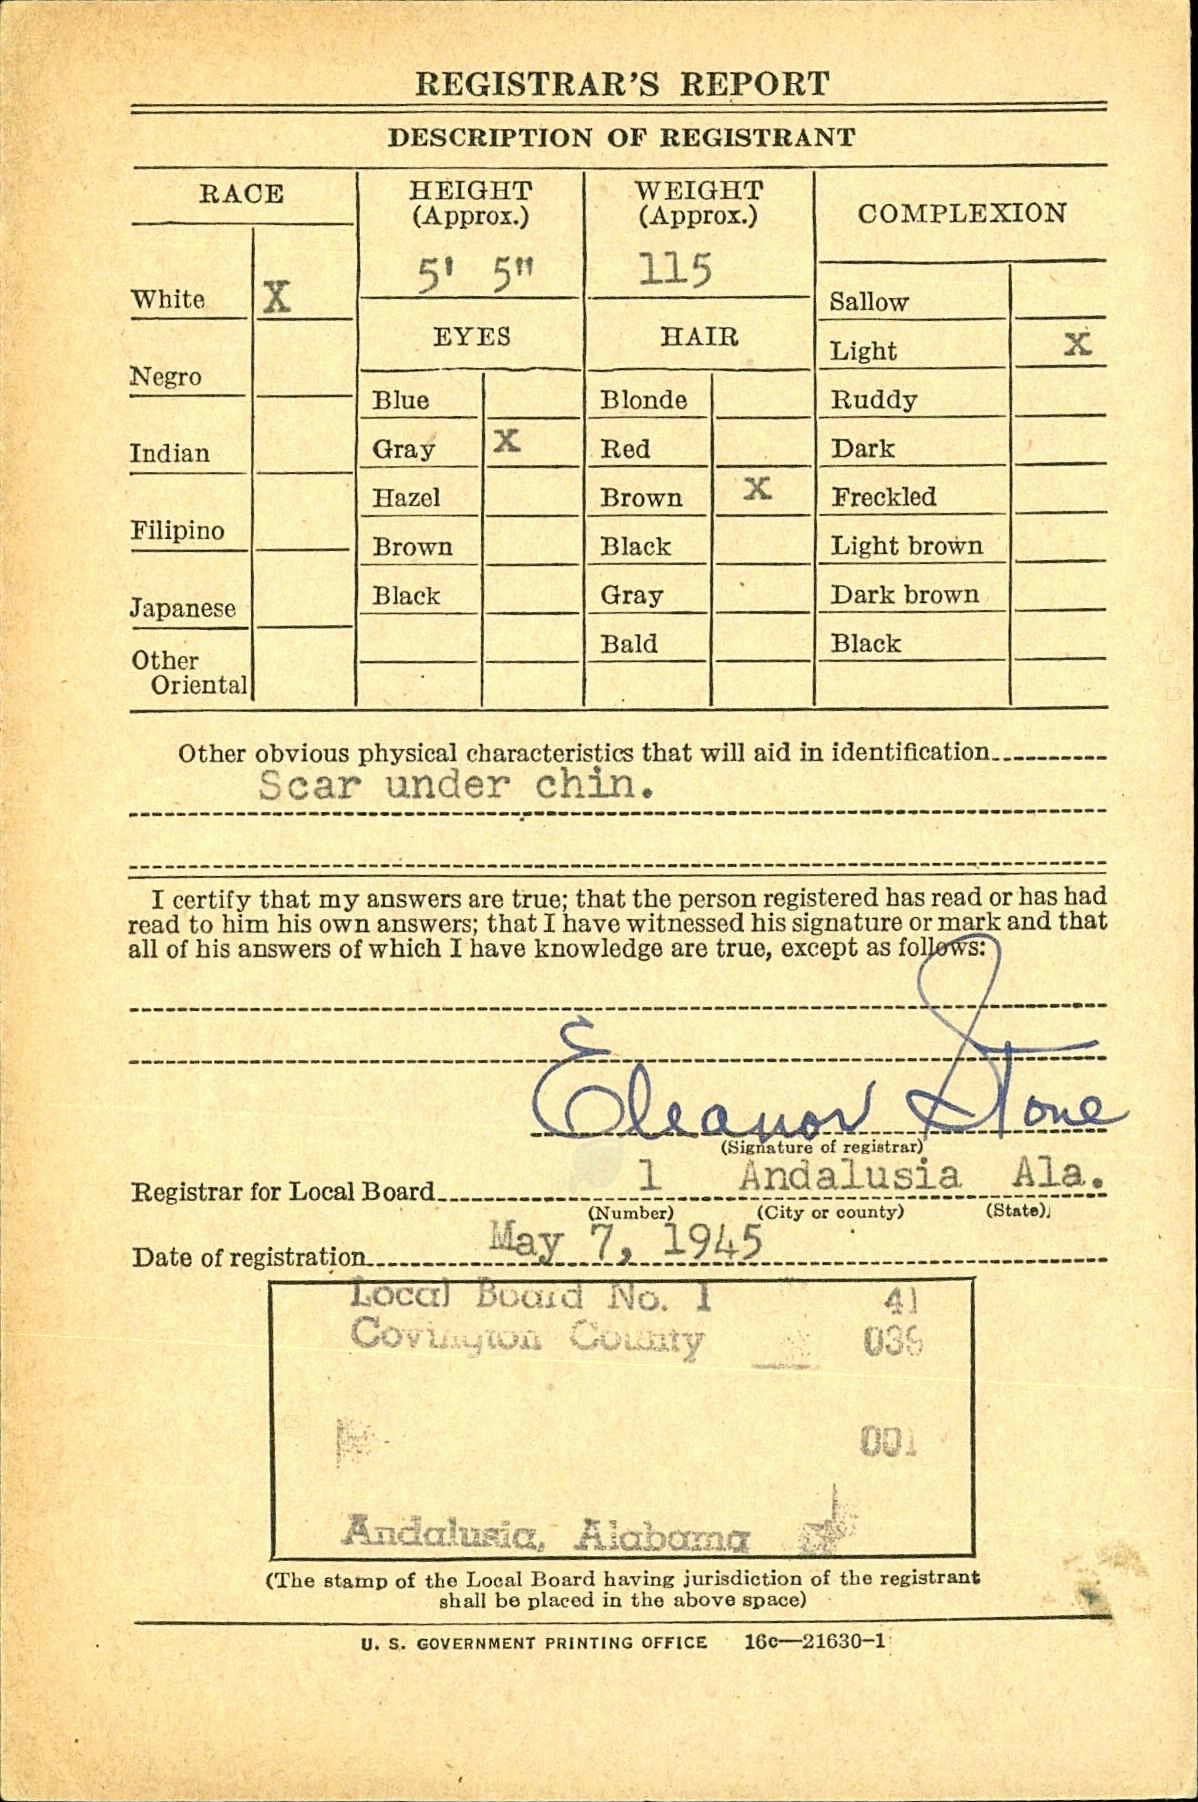 REGISTRAR'S REPORT
DESCRIPTION OF REGISTRANT
RACE
HEIGHT
(Approx.)
WEIGHT
(Approx.)
COMPLEXION
5' 5"
115
White X
Sallow
EYES
HAIR
Light X
Negro
Blue
Blonde
Ruddy
Indian
Gray X
Red
Dark
Hazel
Brown X
Freckled
Filipino
Brown
Black
Light brown
Japanese
Black
Gray
Dark brown
Bald
Black
Other
Oriental
Other obvious physical characteristics that will aid in identification
Scar under chin.
I certify that my answers are true; that the person registered has read or has had
read to him his own answers; that I have witnessed his signature or mark and that
all of his answers of which I have knowledge are true, except as follows:
Eleanor Stone
(Signature of registrar)
Registrar for Local Board 1 Andalusia Ala.
(Number) (City or county) (State)
Date of registration May 7, 1945
Local Board No. 1 41
Covington County 039
001
Andalusia, Alabama
(The stamp of the Local Board having jurisdiction of the registrant
shall be placed in the above space)
U. S. GOVERNMENT PRINTING OFFICE 16c—21630-1